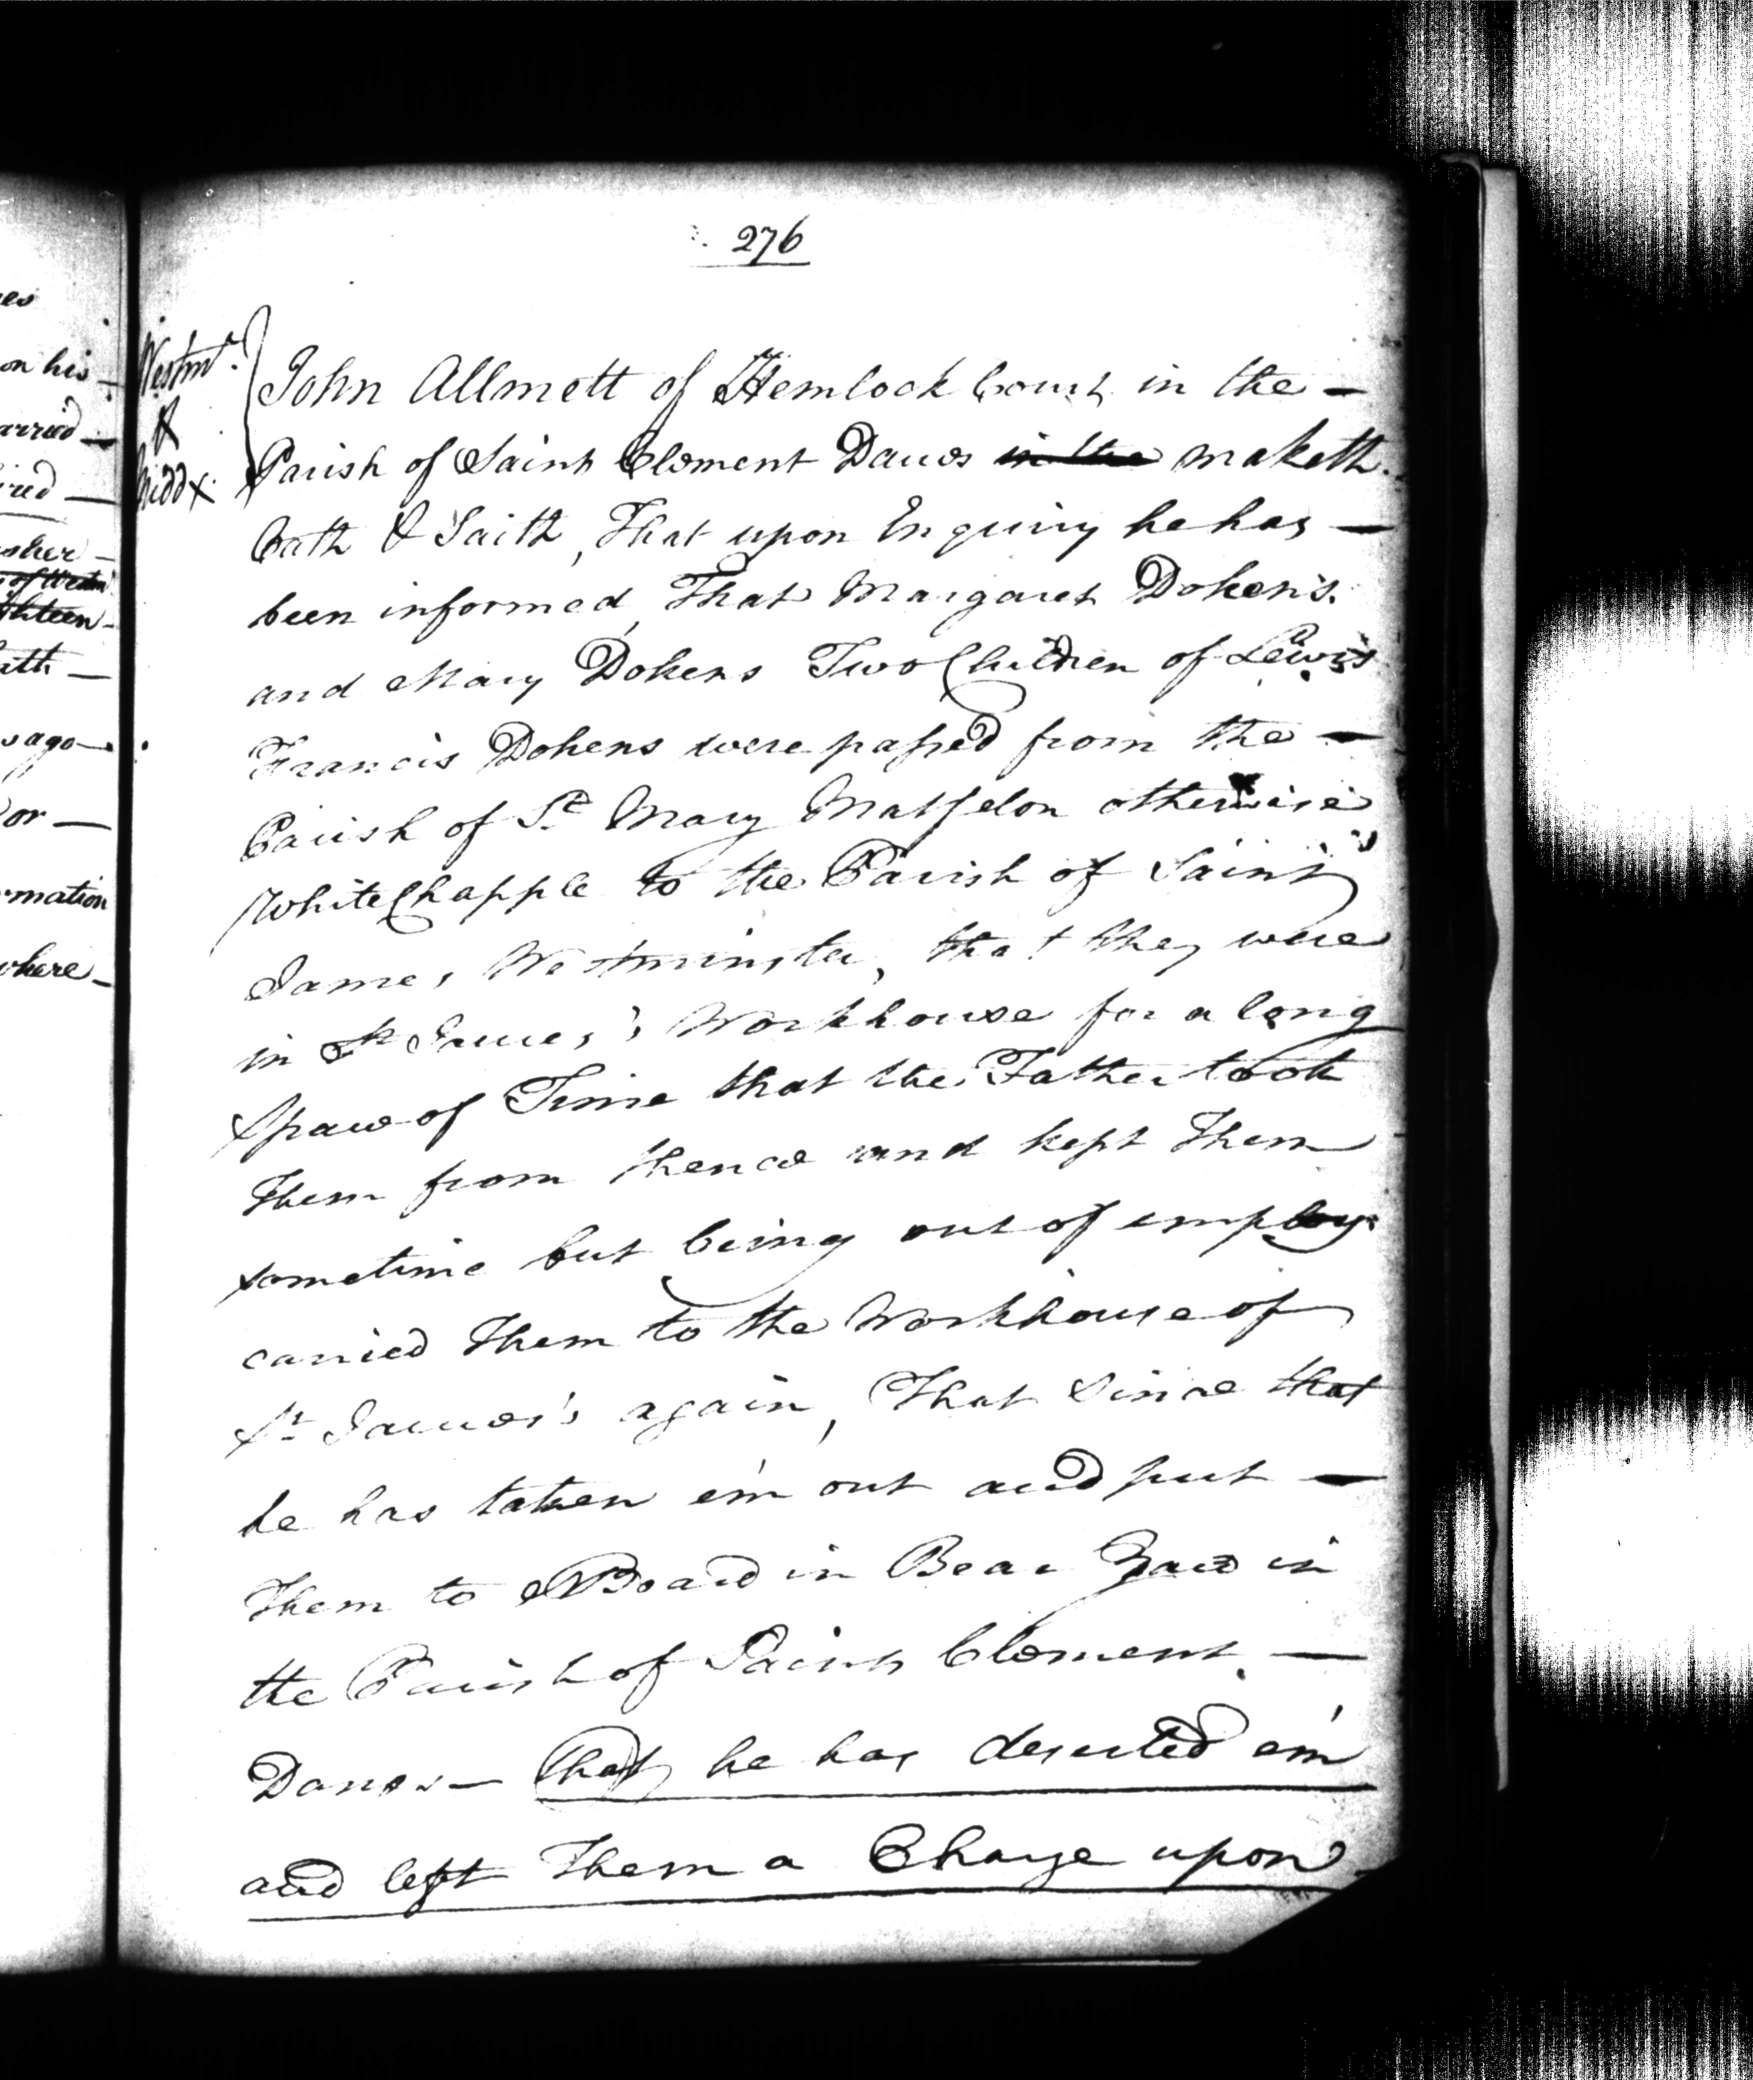 276
Westmr.
&
Middx.
John Allmett of Hemlock Court in the -
Parish of Saint Clement Danes in the maketh
Oath & Saith, That upon Enquiry he has -
been informed, That Margaret Dokens.
and Mary Dokens Two Children of Lewis
Francis Dokens were passed from the -
Parish of St. Mary Matfelon otherwise
White Chapple to the Parish of Saint
James, Westminster, that they were
in St James's Workhouse for a long
space of Time that the Father took
Them from thence and kept Them
sometime but being out of employ
carried Them to the Workhouse of
St James's again, That Since that
he has taken e'm out and put -
Them to Board in Bear Yard in
the Parish of Saint Clement -
Danes - that he has deserted e'm
and left Them a Charge upon
on his
arried -
ired -
hteen -
ath -
s ago -
or -
rmation
where -